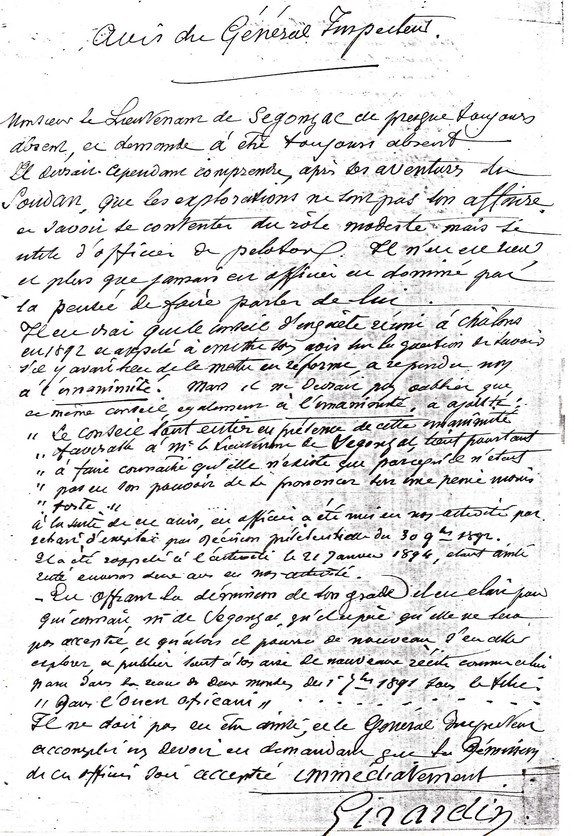 Avis du Général Inspecteur.
Monsieur le Lieutenant de Segonzac est presque toujours
absent, et demande à être toujours absent.
Il devrait cependant comprendre, après ses aventures du
Soudan, que les explorations ne sont pas son affaire
et savoir se contenter du rôle modeste mais si
utile d'officier de peloton. Il n'en est rien
et plus que jamais cet officier est dominé par
la pensée de faire parler de lui.
Il est vrai que le conseil d'enquête réuni à Châlons
en 1892 et appelé à émettre son avis sur la question de savoir
s'il y avait lieu de le mettre en réforme, a répondu non
à l'unanimité. Mais il ne devrait pas oublier que
ce même conseil également à l'unanimité, a ajouté :
" Le conseil tout entier en présence de cette unanimité
" favorable à Mr le Lieutenant de Segonzac tient pourtant
" à faire connaître qu'elle n'existe que parcequ'il n'était
" pas en son pouvoir de se prononcer sur une peine moins
" forte. "
à la suite de cet avis, cet officier a été mis en non-activité par
retrait d'emploi par décision présidentielle du 30 9bre 1892.
Il a été rappelé à l'activité le 21 Janvier 1894, étant ainsi
resté environ deux ans en non-activité.
- En offrant la démission de son grade il est clair pour
qui connait Mr de Segonzac, qu'il espère qu'elle ne sera
pas acceptée et qu'alors il pourra de nouveau s'en aller
explorer et publier tout à son aise de nouveaux récits comme celui
paru dans la revue des deux mondes du 1er 7bre 1891 sous le titre :
" Dans l'Ouest Africain " . . . . . . .
Il ne doit pas en être ainsi, et le Général Inspecteur
accomplit un devoir en demandant que la Démission
de cet officier soit acceptée immédiatement.
Girardin